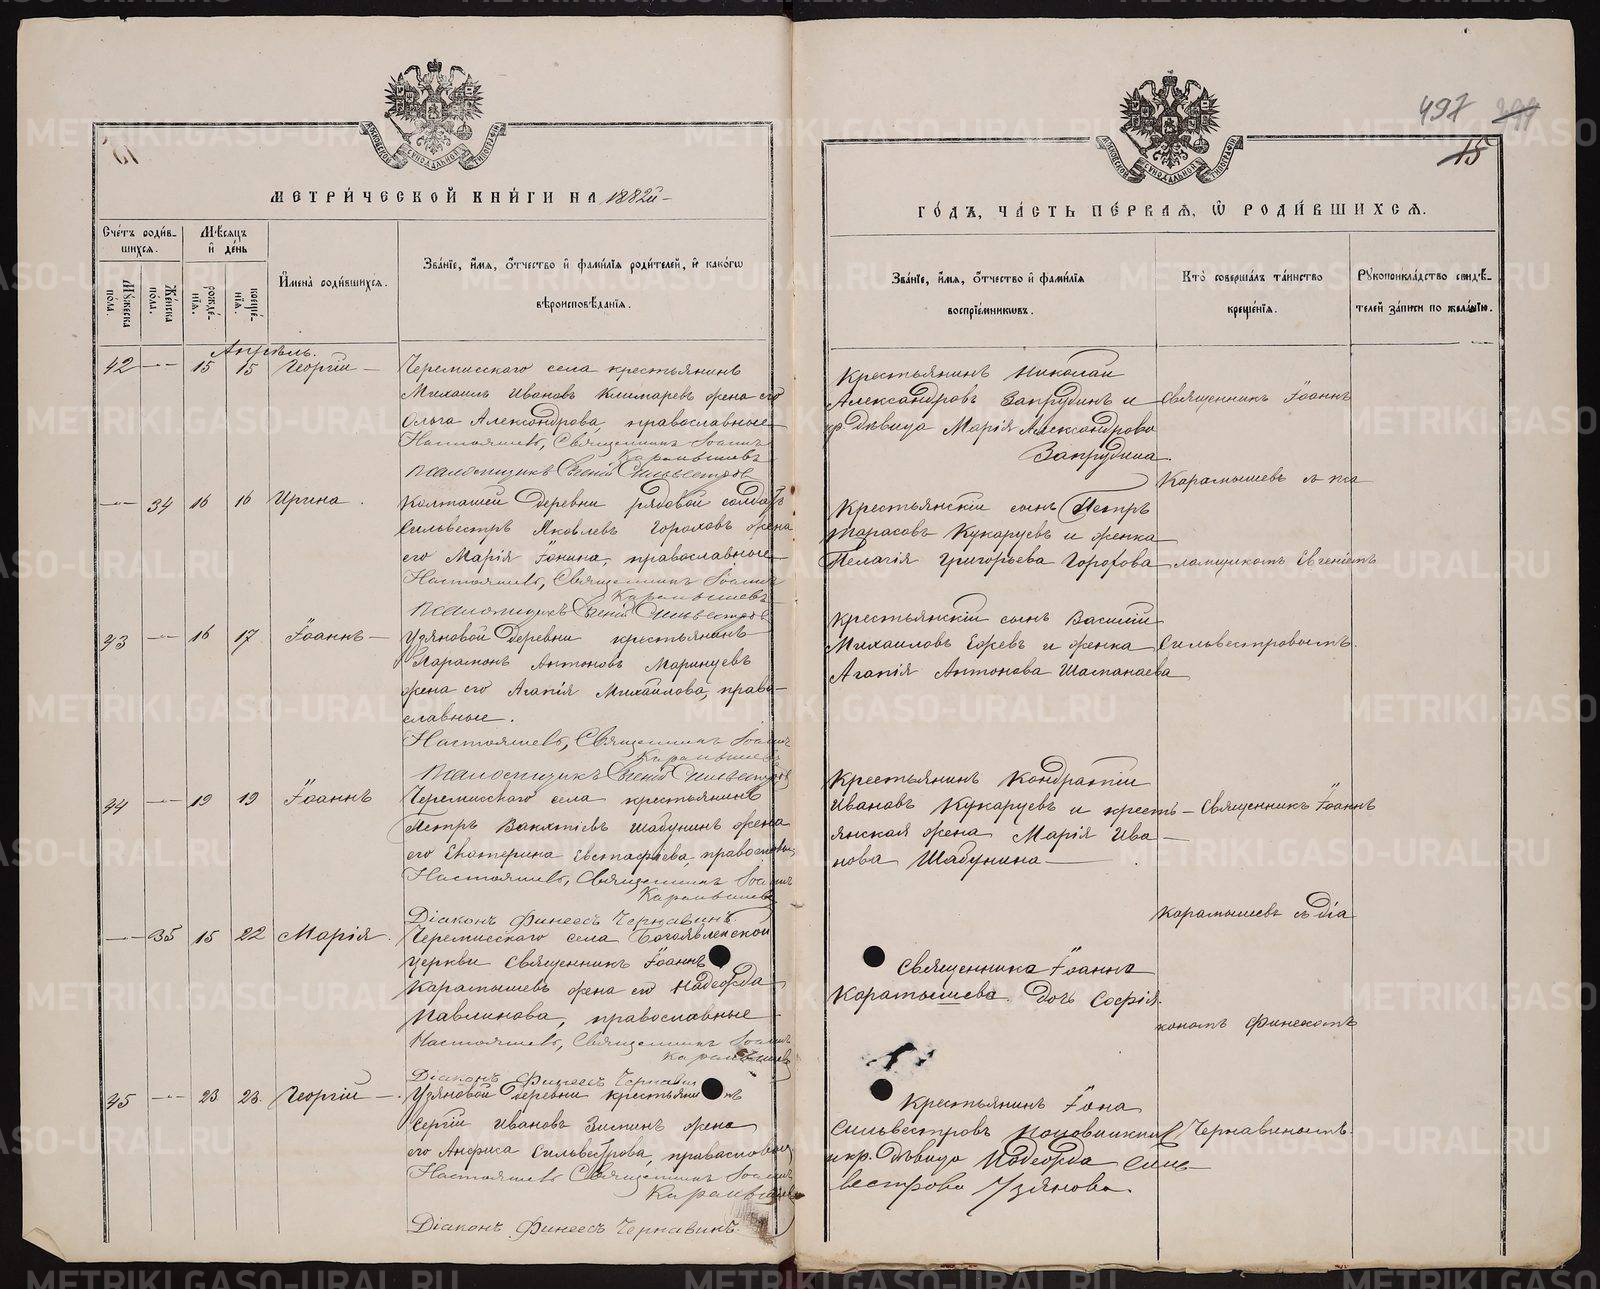 МЕТРИ́ЧЕСКОЙ КНИ́ГИ НА 1882й
Сче́тъ роди́в-
шихся.
Мѣ́сяцъ
и҆ де́нь
Му́жеска
по́ла.
Же́нска
по́ла.
рожде́-
нїѧ.
креще́-
нїѧ.
И҆мена̀ роди́вшихсѧ.
Зва́нїе, и҆́мѧ, ѻ҆́тчество и҆ фами́лїѧ роди́телей, и҆ како́гѡ
вѣроисповѣ́данїѧ.
Апрѣль.
42 — 15 15 Георгій —
Черемисскаго села крестьянинъ
Михаилъ Ивановъ Климаревъ жена его
Ольга Александрова, православные
Настоятель, Священникъ Іоаннъ
Карамышевъ
Псаломщикъ Евгеній Сильвестровъ
— 34 16 16 Ирина.
Колташей деревни рядовой солдатъ
Сильвестръ Яковлевъ Гороховъ жена
его Марія Іонина, православные
Настоятель, Священникъ Іоаннъ
Карамышевъ
Псаломщикъ Евгеній Сильвестровъ
43 — 16 17 Іоаннъ —
Узяновой деревни крестьянинъ
Парамонъ Антоновъ
жена его Агапія Михайлова, право-
славные.
Настоятель, Священникъ Іоаннъ
Карамышевъ
Псаломщикъ Евгеній Сильвестровъ
44 — 19 19 Іоаннъ
Черемисскаго села крестьянинъ
Петръ Шабунинъ жена
его Екатерина Евстафіева, православные
Настоятель, Священникъ Іоаннъ
Карамышевъ
Діаконъ Финеесъ Чернавинъ.
— 35 15 22 Марія.
Черемисскаго села Богоявленской
церкви Священникъ Іоаннъ
Карамышевъ жена его Надежда
Павлинова, православные
Настоятель, Священникъ Іоаннъ
Карамышевъ
Діаконъ Финеесъ Чернавинъ
45 — 23 23. Георгій —
Узяновой деревни крестьянинъ
Сергій Ивановъ Зиминъ жена
его Анфиса Сильвестрова, православные
Настоятель Священникъ Іоаннъ
Карамышевъ
Діаконъ Финеесъ Чернавинъ.
497
15
ГО́ДЪ, ЧА́СТЬ ПЕ́РВАЯ, Ѡ҆ РОДИ́ВШИХСЯ.
Зва́нїе, и҆́мѧ, ѻ҆́тчество и҆ фами́лїѧ
воспрїе́мникѡвъ.
Кто̀ соверша́лъ та́инство
креще́нїѧ.
Рꙋкоприкла́дство свидѣ́-
телей за́писи по жела́нїю.
Крестьянинъ Николай
Александровъ Запрудинъ и
кр. дѣвица Марія Александрова
Запрудина.
Священникъ Іоаннъ
Карамышевъ съ пса
Крестьянскій сынъ Петръ
Тарасовъ Кукарцевъ и женка
Пелагія Григорьева Горохова
ломщикомъ Евгеніемъ
Крестьянскій сынъ Василій
Михайловъ Ежевъ и женка
Агапія Антонова Шаманаева
Сильвестровымъ.
Крестьянинъ Кондратій
Ивановъ Кукарцевъ и кресть-
янская жена Марія Ива
нова Шабунина —
Священникъ Іоаннъ
Карамышевъ съ діа
Священника Іоанна
Карамышева дочь Софія.
кономъ Финеесомъ
Крестьянинъ Іона
Сильвестровъ
и кр. дѣвица Надежда Силь-
вестрова Узянова.
Чернавинымъ.
METRIKI.GASO-URAL.RU